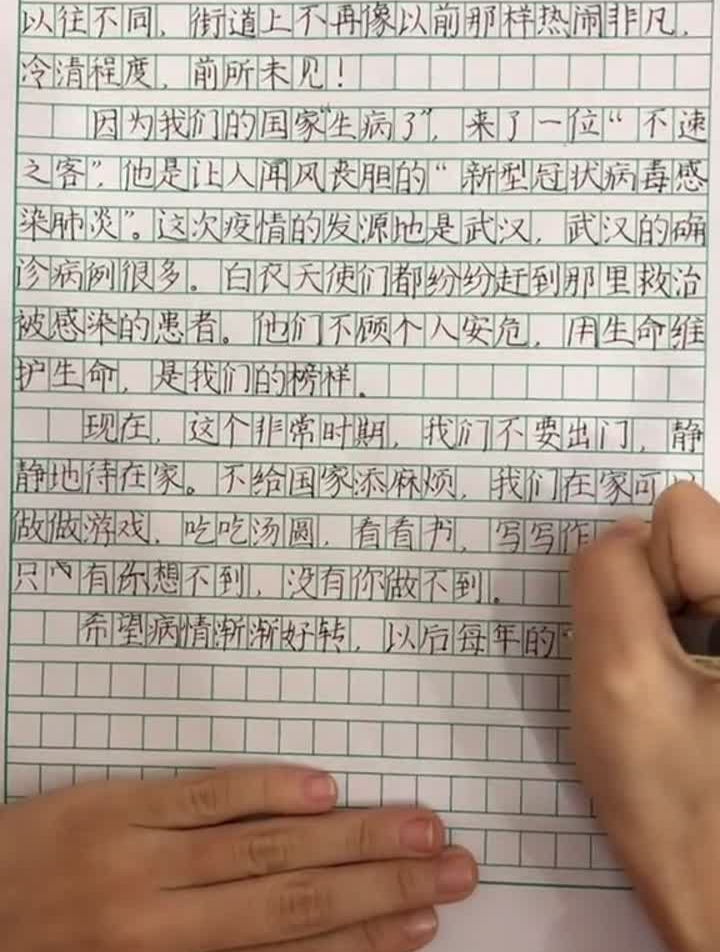 以往不同，街道上不再像以前那样热闹非凡，
冷清程度，前所未见！
因为我们的国家“生病了”，来了一位“不速
之客”，他是让人闻风丧胆的“新型冠状病毒感
染肺炎”。这次疫情的发源地是武汉，武汉的确
诊病例很多。白衣天使们都纷纷赶到那里救治
被感染的患者。他们不顾个人安危，用生命维
护生命，是我们的榜样。
现在，这个非常时期，我们不要出门，静
静地待在家。不给国家添麻烦，我们在家可以
做做游戏，吃吃汤圆，看看书，写写作
只有你想不到，没有你做不到。
希望病情渐渐好转，以后每年的